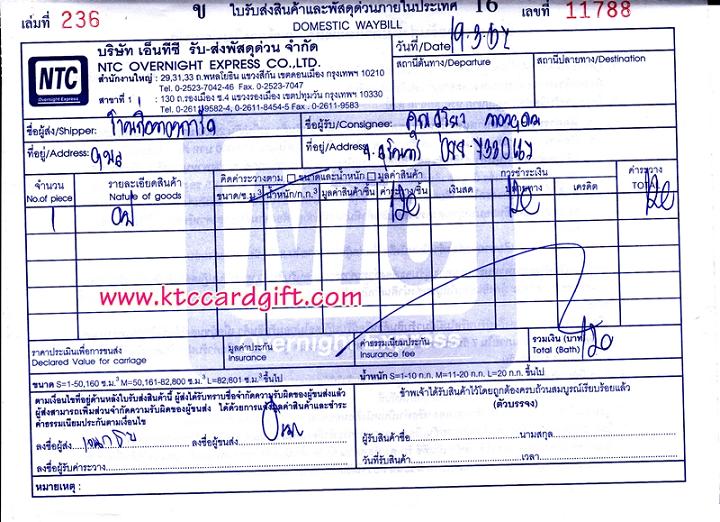 เล่มที่ 236 ข ใบรับส่งสินค้าและพัสดุด่วนภายในประเทศ 16 เลขที่ 11788
DOMESTIC WAYBILL
NTC
Overnight Express
บริษัท เอ็นทีซี รับ-ส่งพัสดุด่วน จำกัด
NTC OVERNIGHT EXPRESS CO.,LTD.
สำนักงานใหญ่ : 29,31,33 ถ.พหลโยธิน แขวงสีกัน เขตดอนเมือง กรุงเทพฯ 10210
Tel. 0-2523-7042-46 Fax. 0-2523-7047
สาขาที่ 1 : 130 ถ.รองเมือง ซ.4 แขวงรองเมือง เขตปทุมวัน กรุงเทพฯ 10330
Tel. 0-2611-9582-4, 0-2611-8454-5 Fax. 0-2611-9583
วันที่/Date
สถานีต้นทาง/Departure สถานีปลายทาง/Destination
ชื่อผู้ส่ง/Shipper: ชื่อผู้รับ/Consignee:
ที่อยู่/Address: ที่อยู่/Address:
จำนวน รายละเอียดสินค้า คิดค่าระวางตาม ขนาดและน้ำหนัก มูลค่าสินค้า การชำระเงิน ค่าระวาง
No.of piece Nature of goods ขนาด/ซ.ม.³ น้ำหนัก/ก.ก. มูลค่าสินค้า/ชิ้น ค่าระวาง/ชิ้น เงินสด ปลายทาง เครดิต TOTAL
1
NTC
www.ktccardgift.com
Overnight Express
ราคาประเมินเพื่อการขนส่ง มูลค่าประกัน ค่าธรรมเนียมประกัน รวมเงิน (บาท)
Declared Value for carriage Insurance Insurance fee Total (Bath) 120
ขนาด S=1-50,160 ซ.ม.³ M=50,161-82,800 ซ.ม.³ L=82,801 ซ.ม.³ ขึ้นไป น้ำหนัก S=1-10 ก.ก. M=11-20 ก.ก. L=20 ก.ก. ขึ้นไป
ตามเงื่อนไขที่อยู่ด้านหลังใบรับส่งสินค้านี้ ผู้ส่งได้รับทราบข้อจำกัดความรับผิดของผู้ขนส่งแล้ว
ผู้ส่งสามารถเพิ่มส่วนจำกัดความรับผิดของผู้ขนส่ง ได้ด้วยการแจ้งมูลค่าสินค้าและชำระ
ค่าธรรมเนียมประกันตามเงื่อนไข
ข้าพเจ้าได้รับสินค้าไว้โดยถูกต้องครบถ้วนสมบูรณ์เรียบร้อยแล้ว
(ตัวบรรจง)
ลงชื่อผู้ส่ง ลงชื่อผู้ขนส่ง
ลงชื่อผู้รับค่าระวาง
ผู้รับสินค้าชื่อ นามสกุล
วันที่รับสินค้า เวลา
หมายเหตุ :